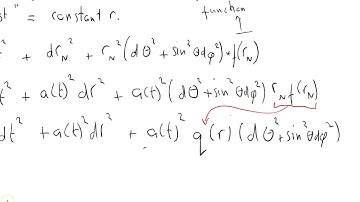 st" = constant r.
function
² + dr_N² + r_N² (dθ² + sin²θdφ²) * f(r_N)
t² + a(t)² dr² + a(t)² (dθ² + sin²θdφ²) r_N f(r_N)
dt² + a(t)² dr² + a(t)² q(r) (dθ² + sin²θdφ²)